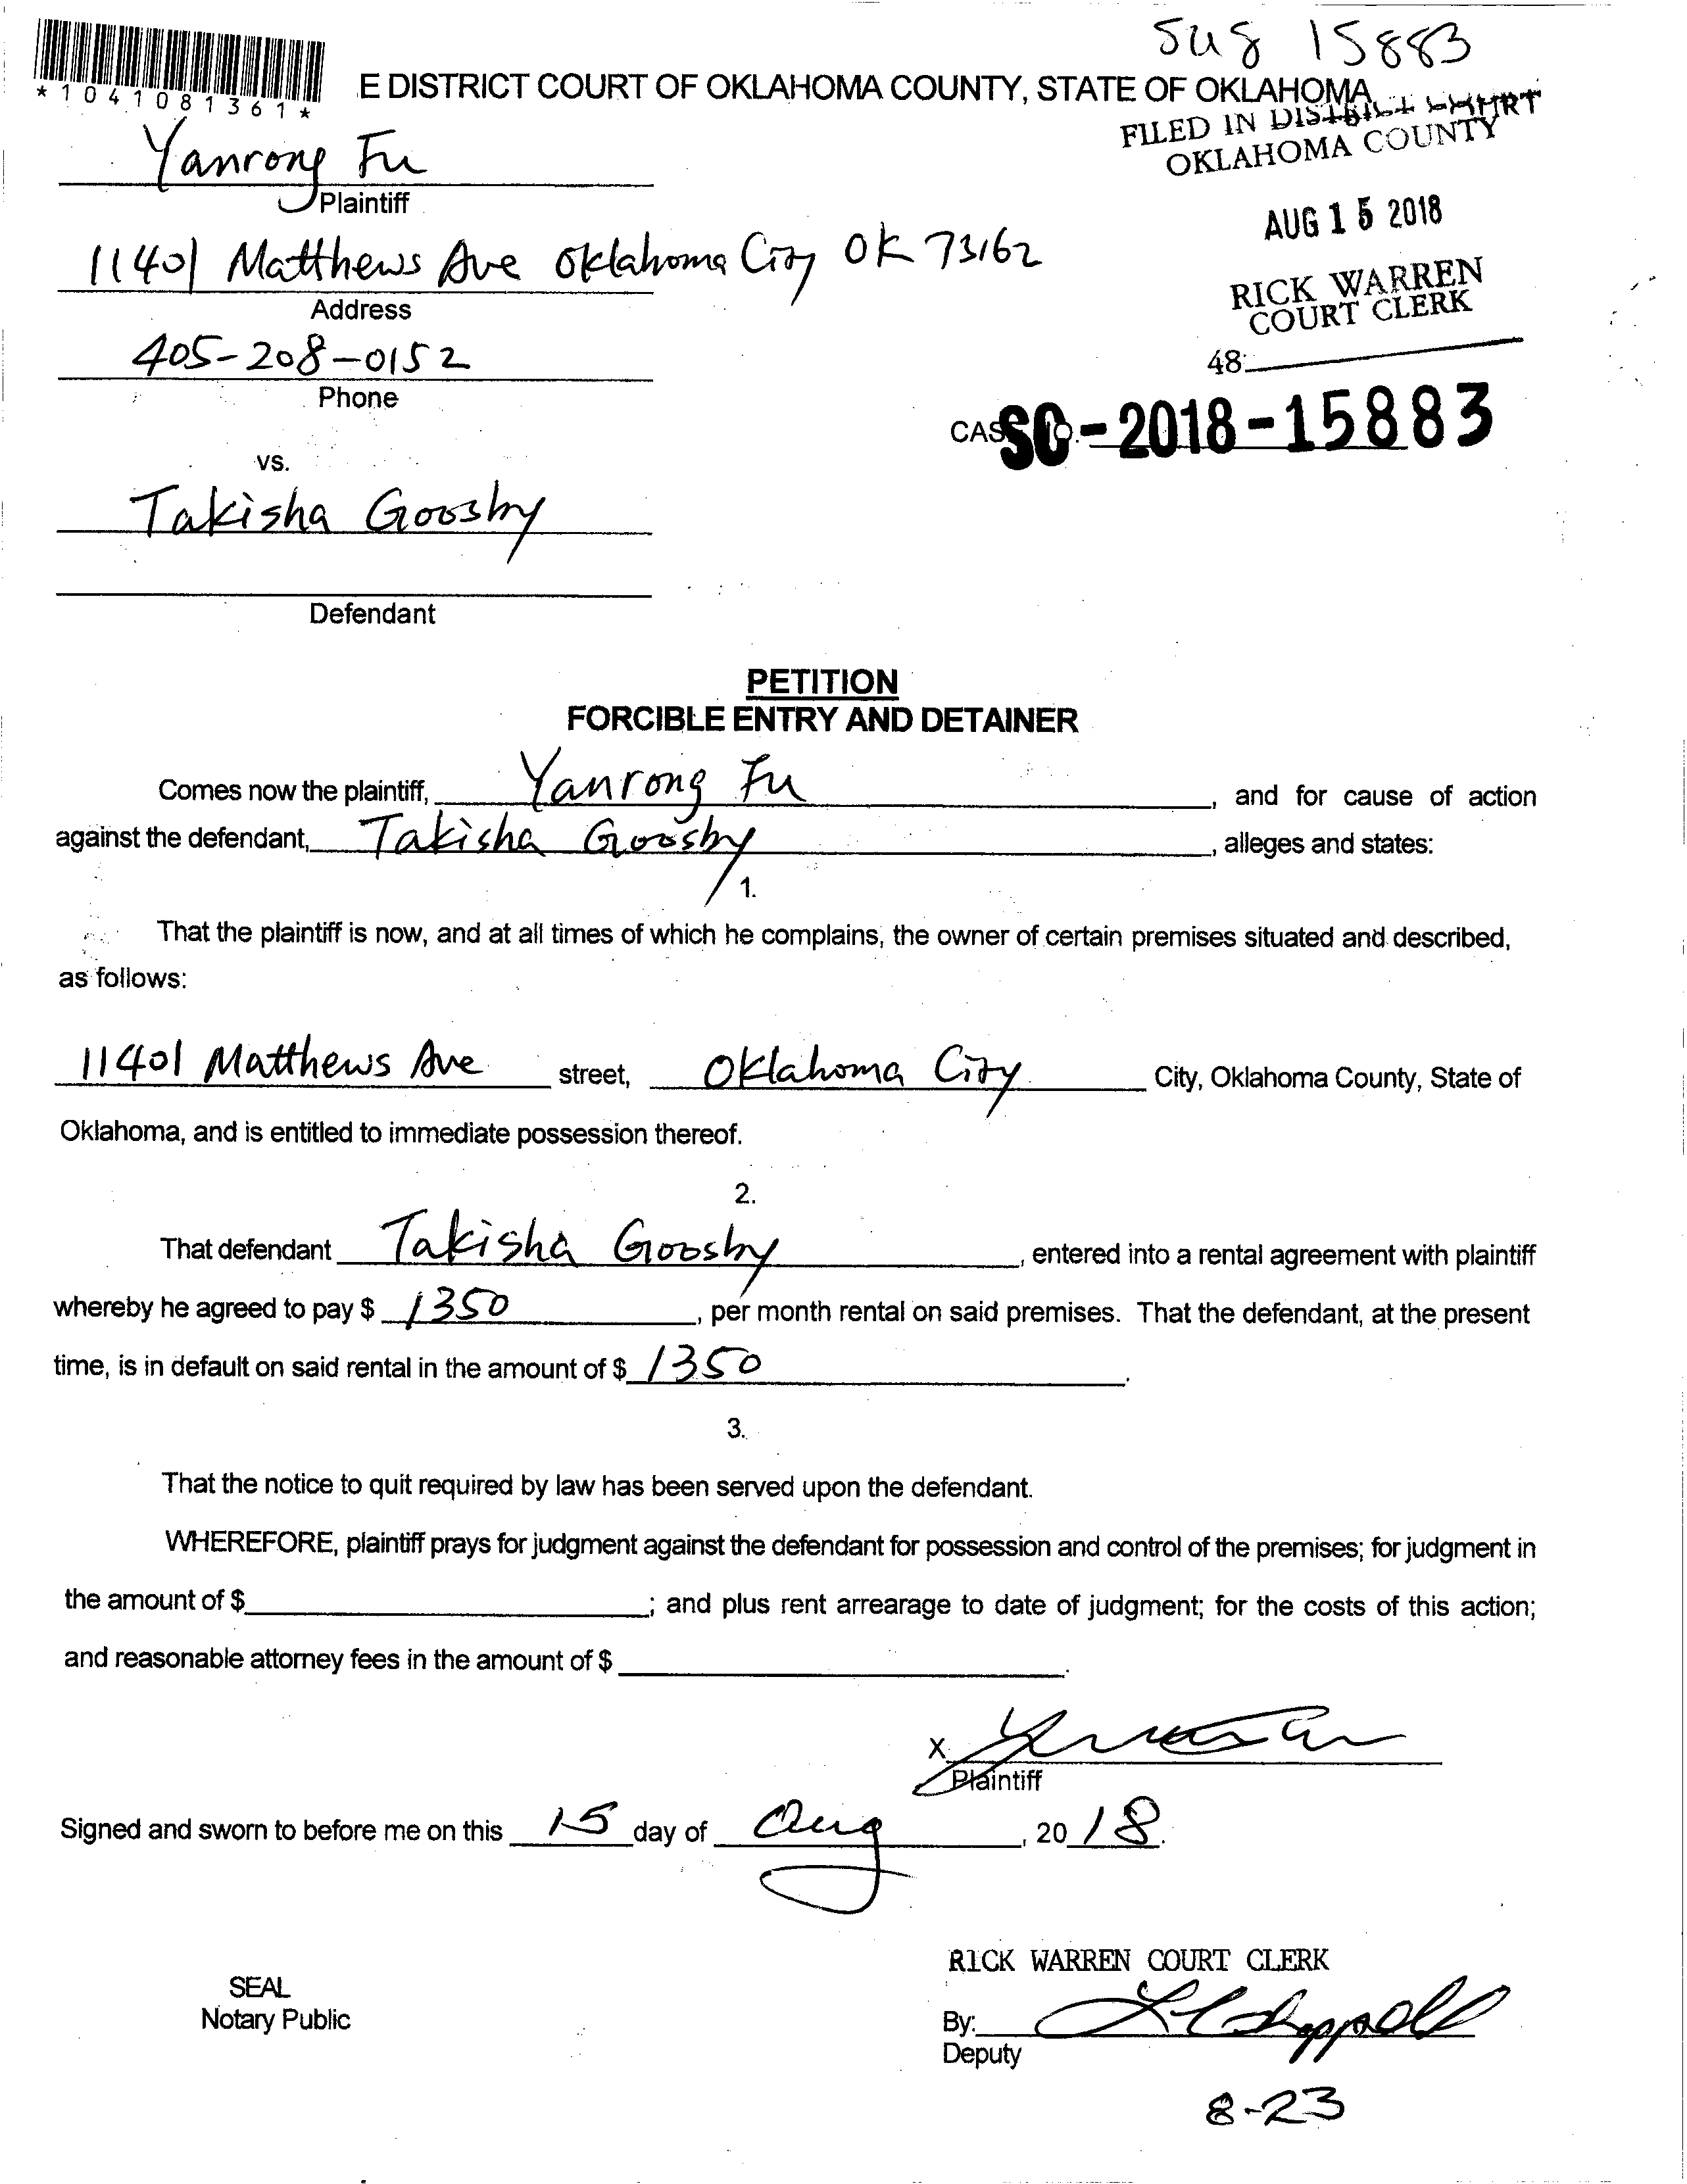 SU8 15883
*1041081361*
E DISTRICT COURT OF OKLAHOMA COUNTY, STATE OF OKLAHOMA
FILED IN DISTRICT COURT
OKLAHOMA COUNTY
Yanrong Fu
Plaintiff
AUG 15 2018
11401 Matthews Ave Oklahoma City OK 73162
Address
RICK WARREN
COURT CLERK
405-208-0152
Phone
48
CAS SC-2018-15883
vs.
Takisha Goosby
Defendant
PETITION
FORCIBLE ENTRY AND DETAINER
Comes now the plaintiff, Yanrong Fu, and for cause of action
against the defendant, Takisha Goosby, alleges and states:
1.
That the plaintiff is now, and at all times of which he complains, the owner of certain premises situated and described,
as follows:
11401 Matthews Ave street, Oklahoma City City, Oklahoma County, State of
Oklahoma, and is entitled to immediate possession thereof.
2.
That defendant Takisha Goosby, entered into a rental agreement with plaintiff
whereby he agreed to pay $ 1350, per month rental on said premises. That the defendant, at the present
time, is in default on said rental in the amount of $ 1350.
3.
That the notice to quit required by law has been served upon the defendant.
WHEREFORE, plaintiff prays for judgment against the defendant for possession and control of the premises; for judgment in
the amount of $ ; and plus rent arrearage to date of judgment; for the costs of this action;
and reasonable attorney fees in the amount of $ .
X
Plaintiff
Signed and sworn to before me on this 15 day of Aug, 20 18.
RICK WARREN COURT CLERK
SEAL
Notary Public
By:
Deputy
8-23